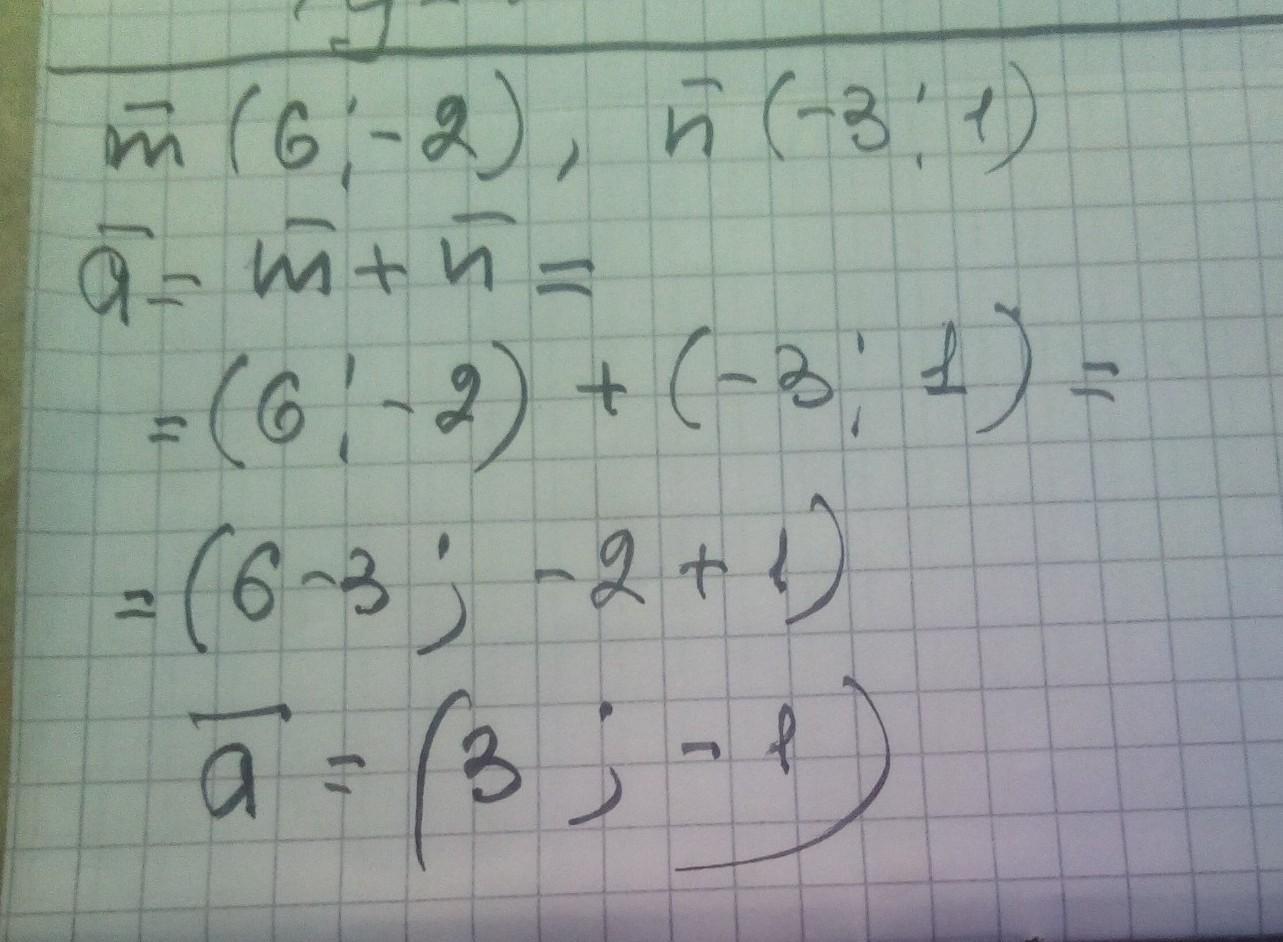 m̅ (6 ; -2), n̅ (-3 ; 1)
a̅ = m̅ + n̅ =
= (6 ; -2) + (-3 ; 1) =
= (6 - 3 ; -2 + 1)
a̅ = (3 ; -1)